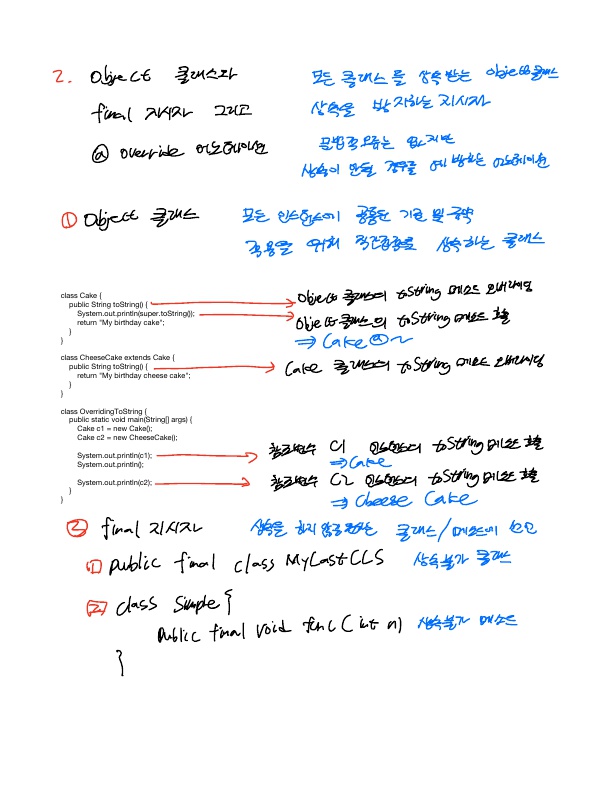 2. Object 클래스와 모든 클래스를 상속 받는 Object클래스
final 지시자 그리고 상속을 방지하는 지시자
@ override 어노테이션 문법적오류는 없지만
상속이 안될 경우를 예방하는 어노테이션
① Object 클래스 모든 인스턴스에 공통된 기준 및 규약
적용을 위해 직간접적으로 상속하는 클래스
class Cake {
public String toString() { Object 클래스의 toString 메소드 오버라이딩
System.out.println(super.toString()); Object 클래스의 toString 메소드 호출
return "My birthday cake"; ⇒ Cake@~
}
}
class CheeseCake extends Cake {
public String toString() { Cake 클래스의 toString 메소드 오버라이딩
return "My birthday cheese cake";
}
}
class OverridingToString {
public static void main(String[] args) {
Cake c1 = new Cake();
Cake c2 = new CheeseCake();
System.out.println(c1); 참조변수 C1 인스턴스의 toString 메소드 호출
System.out.println(); ⇒ Cake
System.out.println(c2); 참조변수 C2 인스턴스의 toString 메소드 호출
} ⇒ Cheese Cake
}
② final 지시자 상속을 하지 클래스/메소드에 선언
① public final class MyLastCLS 상속불가 클래스
② class Simple {
public final void func (int n) 상속불가 메소드
}